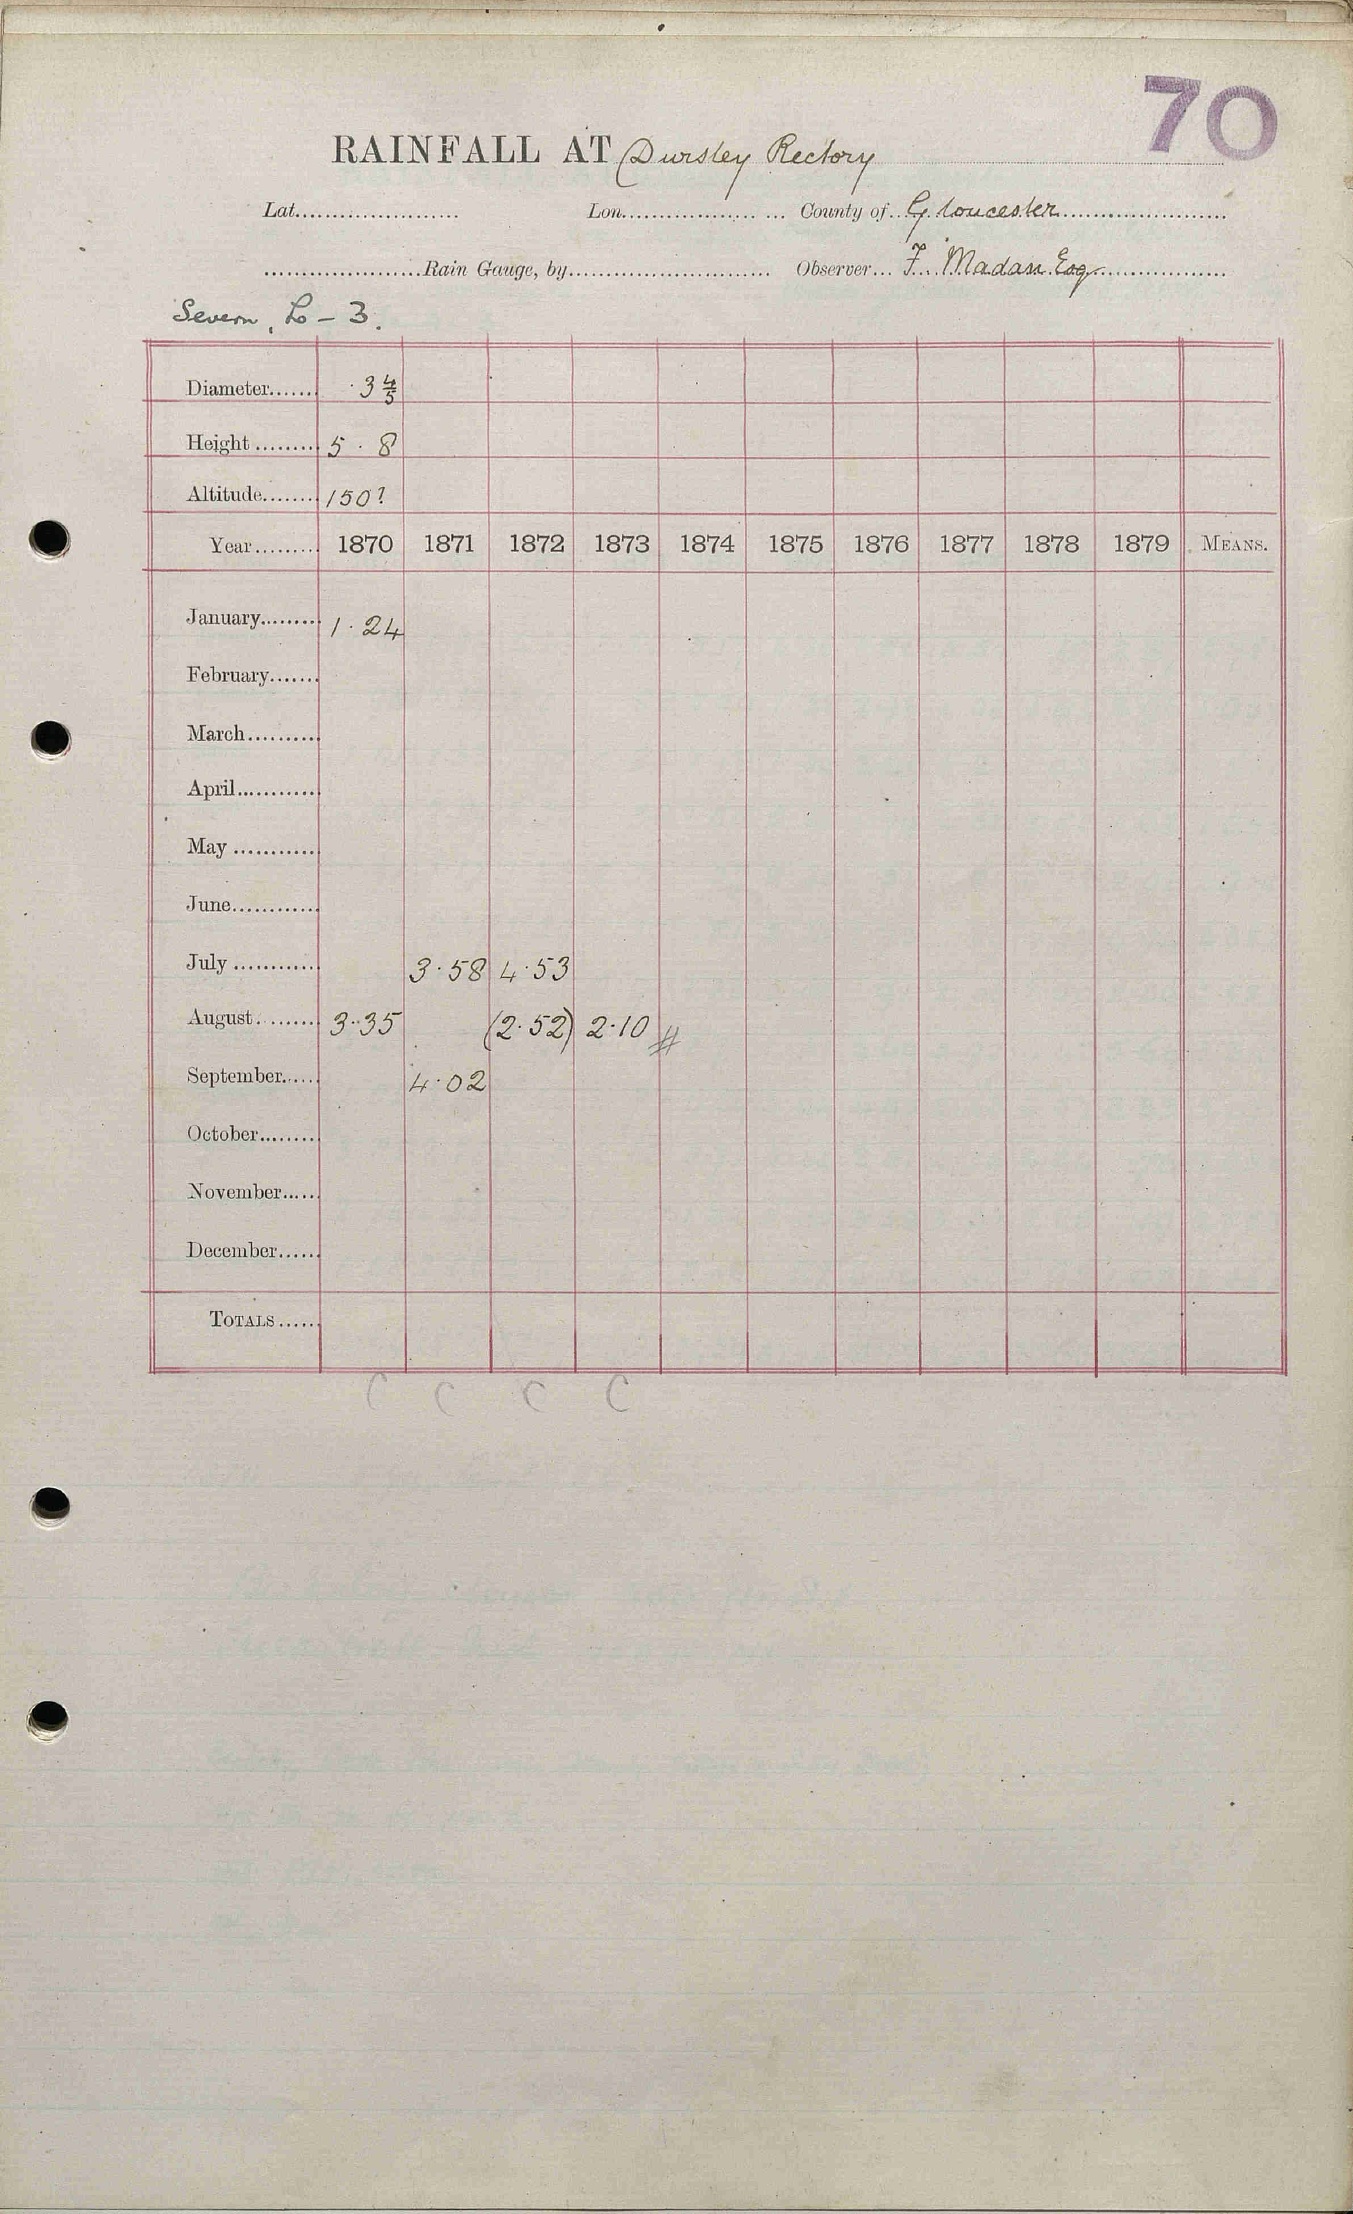 70
RAINFALL AT Dursley Rectory
Lat. Lon. County of Gloucester
Rain Gauge, by Observer F. Madan Esq
Severn, L-3.
Diameter 3 4/5
Height 5 · 8
Altitude 150?
Year 1870 1871 1872 1873 1874 1875 1876 1877 1878 1879 MEANS.
January 1·24
February
March
April
May
June
July 3·58 4·53
August 3·35 (2·52) 2·10 #
September 4·02
October
November
December
TOTALS
C C C C